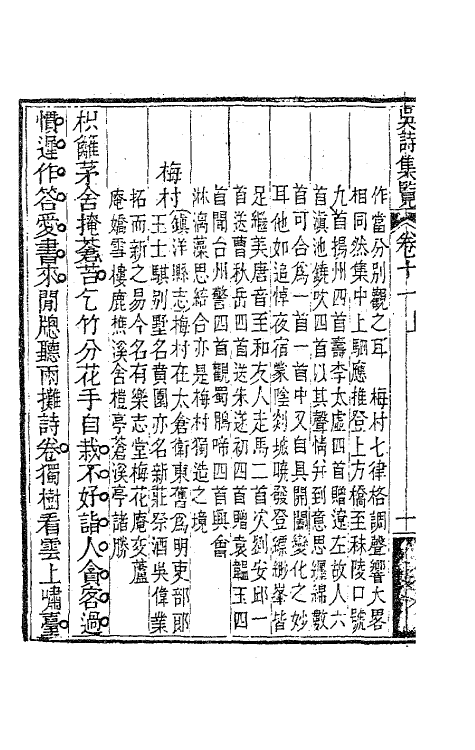 吳詩集覽 卷十一上 十一
作當分別觀之耳 梅村七律格調聲響大畧
相同然集中上駟應推登上方橋至秣陵口號
九首揚州四首壽李太虛四首贈遼左故人六
首滇池鐃吹四首以其聲情并到意思纏綿數
首可合為一首一首中又自具開闔變化之妙
耳他如追悼夜宿蒙陰剡城曉發登縹緲峯皆
足繼美唐音至和友人走馬二首灾劉安邱一
首送曹秋岳四首送朱遂初四首贈袁韞玉四
首聞台州警四首觀蜀鵑啼四首興會
淋漓藻思綺合亦是梅村獨造之境
梅村 鎮洋縣志梅村在太倉衛東舊為明吏部郎
王士騏別墅名賁園亦名新莊祭酒吳偉業
拓而新之易今名有樂志堂梅花庵交蘆
庵嬌雪樓鹿樵溪舍榿亭蒼溪亭諸勝
枳籬茅舍掩蒼苔乞竹分花手自栽不好詣人貪客過
慣遲作答愛書來閒窗聽雨攤詩卷獨樹看雲上嘯臺